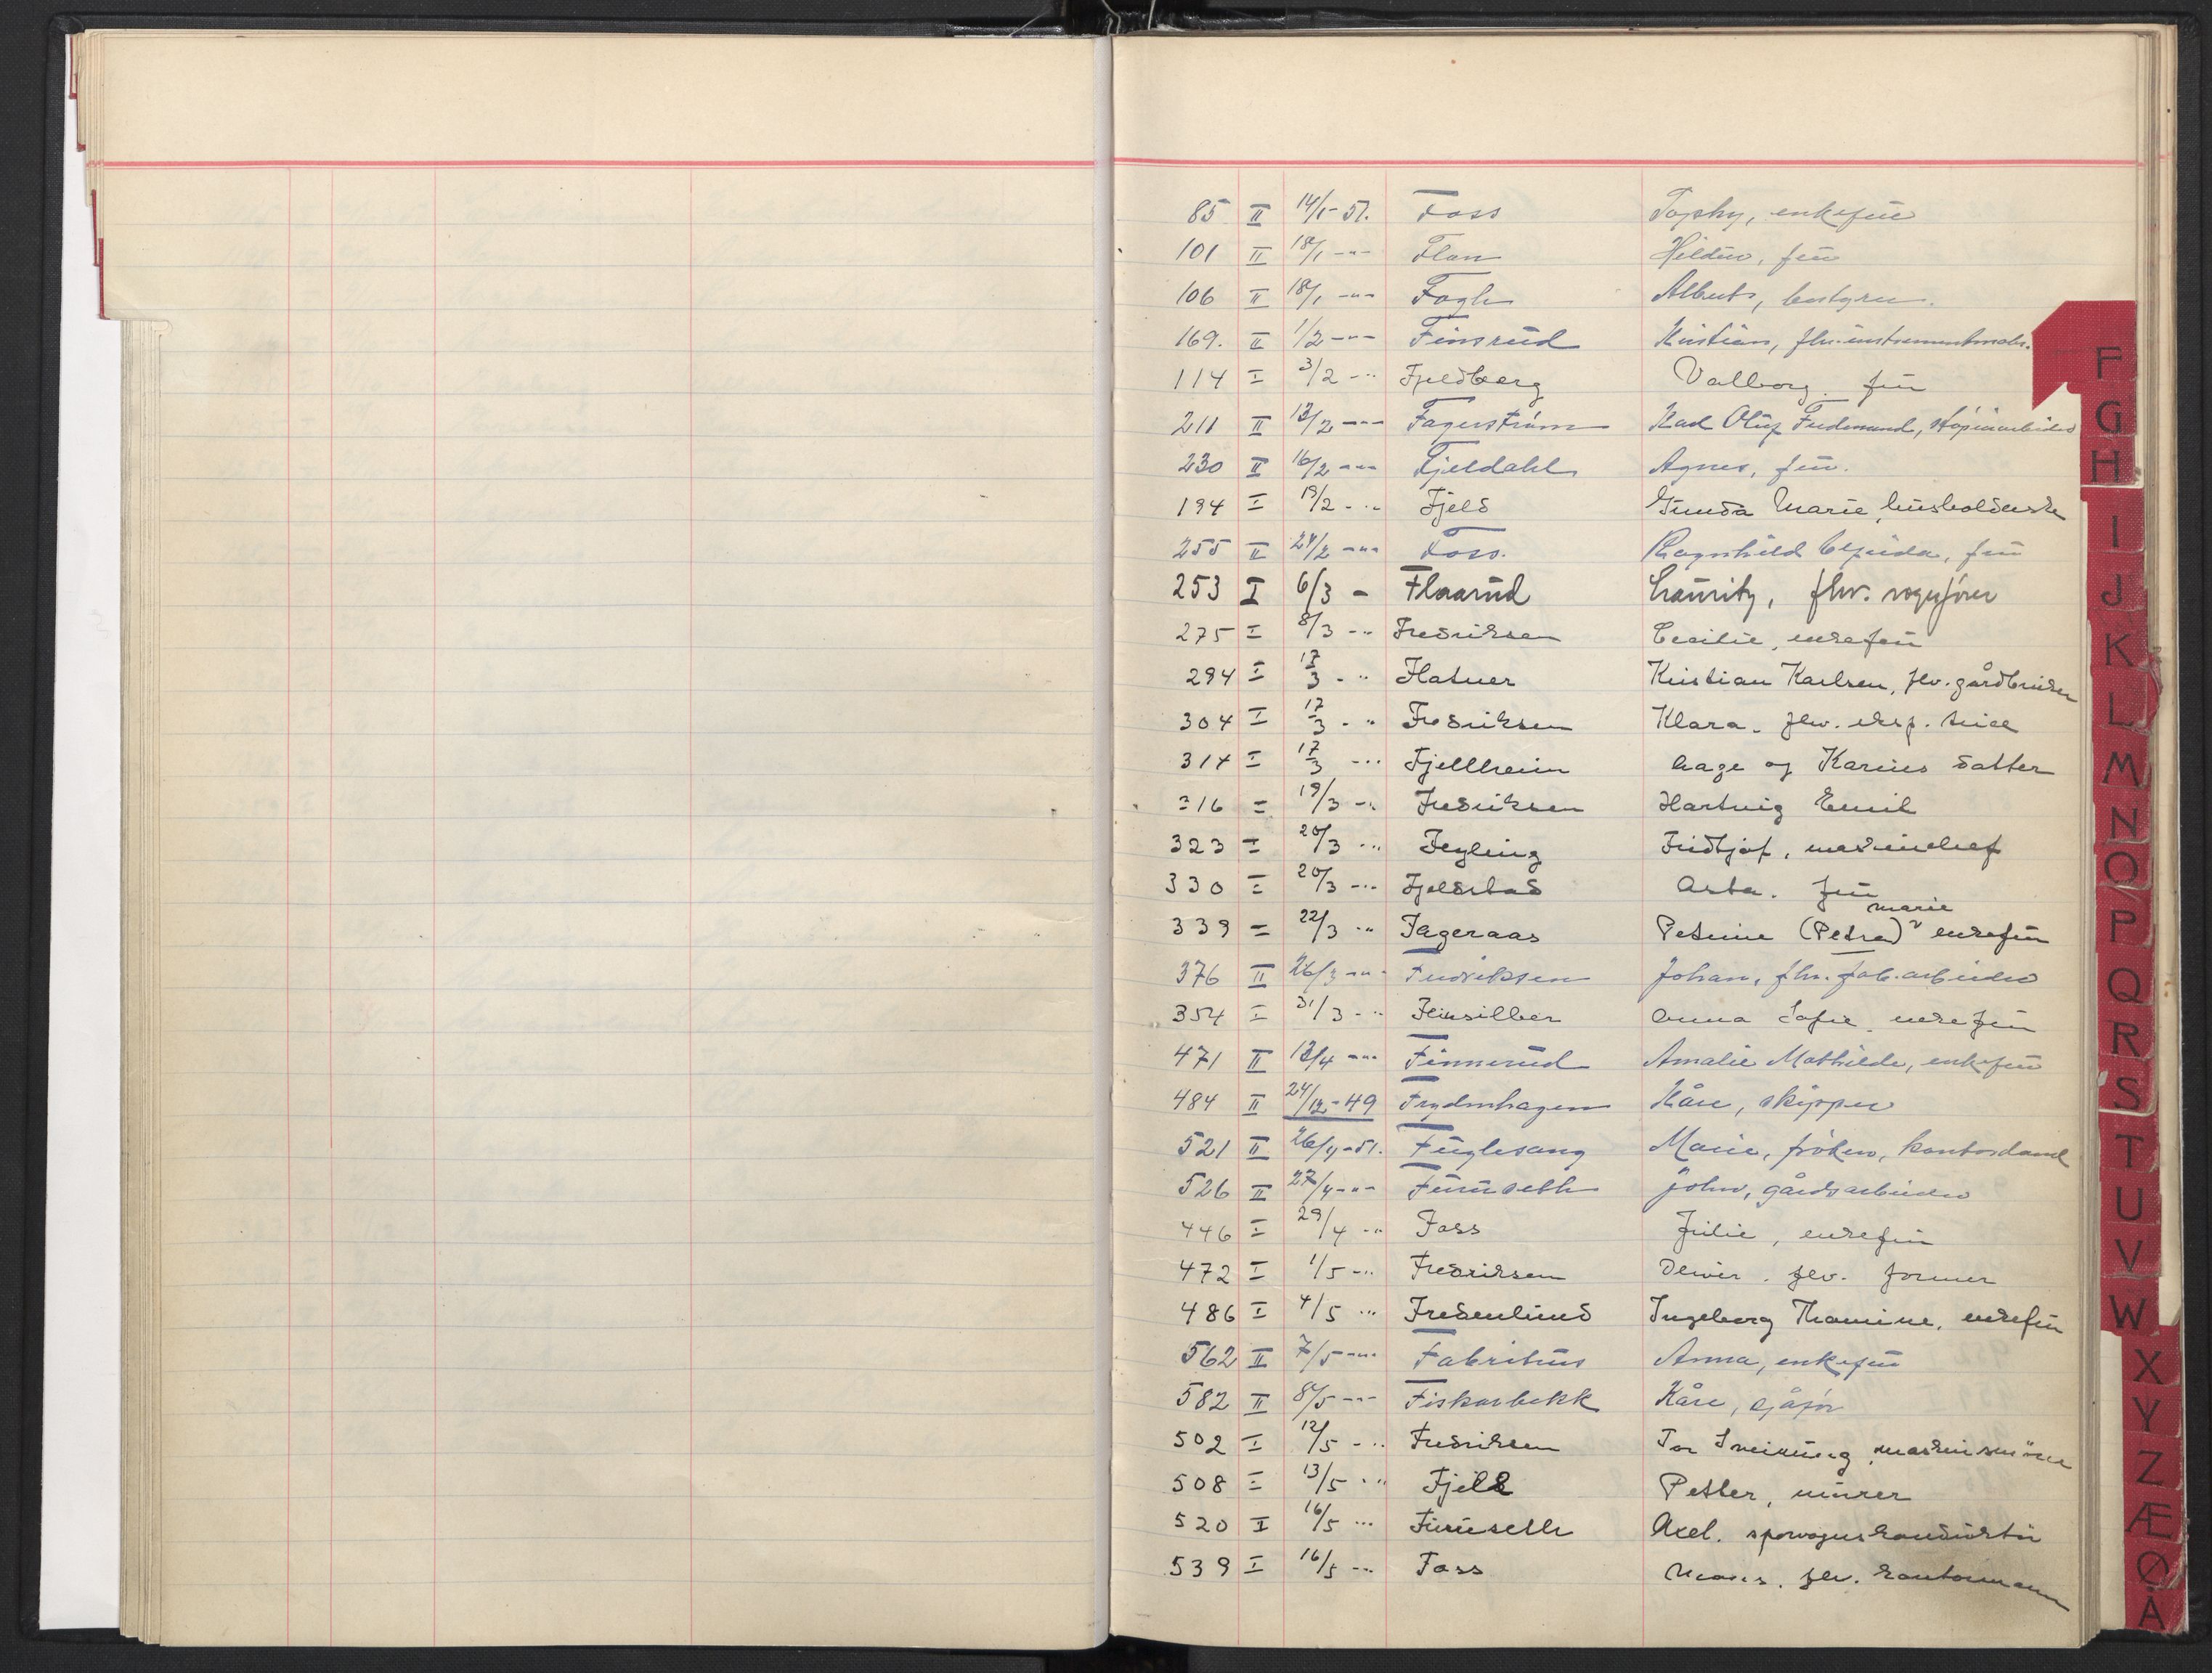 85 II 14/1-51. Foss Topsky, enkefru
101 II 18/1 -"- Flan Hildur, fru
106 II 18/1 -"- Fogh Alberts, bestyrer.
169. II 1/2 -"- Finsrud Kristian, fhv. instrumentmaker.
114 I 3/2 -"- Fjeldberg Valborg fru
211 II 13/2 -"- Fagerstrøm Karl Oluf Ferdinand, støperiarbeider
230 II 16/2 -"- Fjeldahl Agnes, fru.
194 I 19/2 -"- Fjeld Gunda Marie, husholderske
255 II 24/2 -"- Foss. Ragnhild, fru
253 I 6/3 - Flaarud Lauritz, fhv. vognfører
275 I 8/3 -"- Fredriksen Cecilie, enkefru
294 I 17/3 -"- Flatner Kristian Karlsen, fhv. gårdbruker
304 I 17/3 -"- Fredriksen Klara. fhv. eksp.
314 I 17/3 -"- Fjellheim Aage og Karins datter
316 I 19/3 -"- Fredriksen Hartvig Emil
323 I 20/3 -"- Feyling Fridtjof, maskinchef
330 I 20/3 -"- Fjeldstad Asta. fru
339 I 22/3 -"- Fageraas Petrine (Petra) marie enkefru
376 II 26/3 -"- Fredriksen Johan, fhv. fab.arbeider
354 I 31/3 -"- Feinsilber Anna Sofie enkefru
471 II 13/4 -"- Finnerud Amalie Mathilde, enkefru
484 II 24/12-49 Frydenhagen Kåre, skipper
521 II 26/4-51. Fuglesang Marie, frøken, kontordame
526 II 27/4 -"- Furuseth John, gårdsarbeider
446 I 29/4 -"- Foss Julie, enkefru
472 I 1/5 -"- Fredriksen fhv. former
486 I 4/5 -"- Fredenlund Ingeborg Thomine, enkefru
562 II 7/5 -"- Fabritius Anna, enkefru
582 II 8/5 -"- Fiskarbekk Kåre, sjåfør
502 I 12/5 -"- Fredriksen Tor maskinsmører
508 I 13/5 -"- Fjeld Petter, murer
520 I 16/5 -"- Furuseth Axel. sporvognskonduktør
539 I 16/5 -"- Foss fhv. kontormann
F
G
H
I
J
K
L
M
N
O
P
Q
R
S
T
U
V
W
X
Y
Z
Æ
Ø
Å